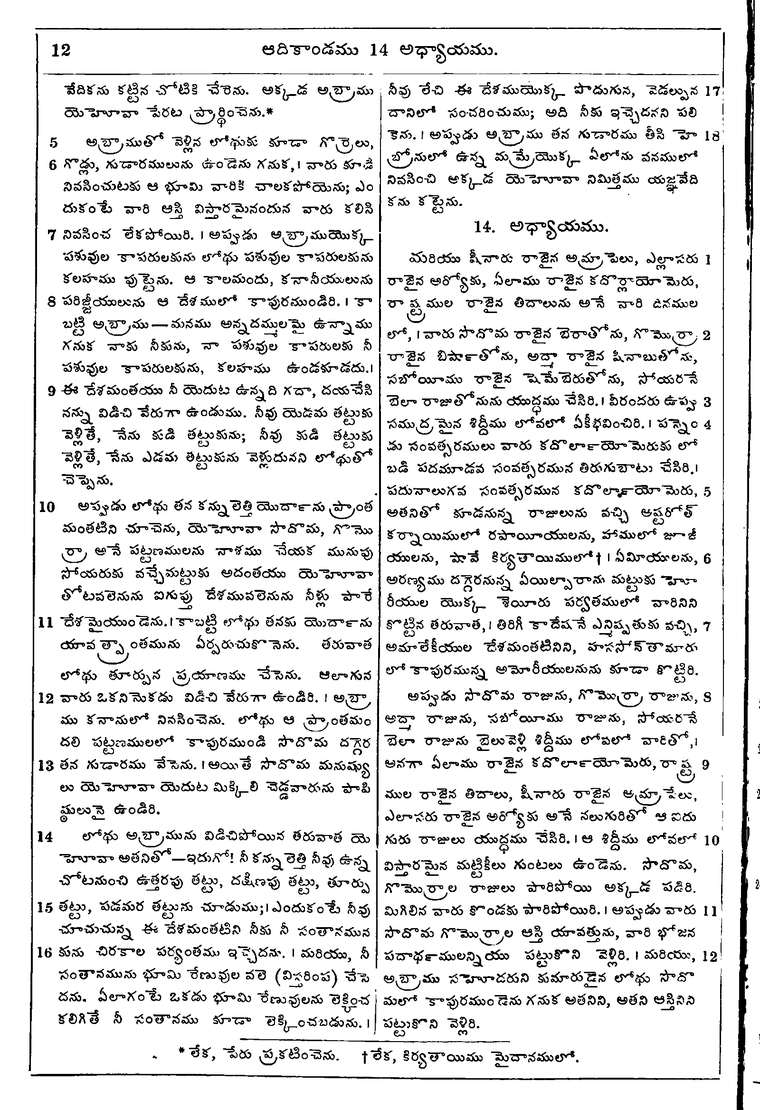 12 ఆదికాండము 14 అధ్యాయము.
వేదికను కట్టిన చోటికి చేరెను. అక్కడ అబ్రాము
యెహోవా పేరట ప్రార్థించెను.*
5 అబ్రాముతో వెళ్లిన లోథుకు కూడా గొర్రెలు,
6 గొడ్లు, గుడారములును ఉండెను గనుక,। వారు కూడి
నివసించుటకు ఆ భూమి వారికి చాలకపోయెను; ఎం
దుకంటే వారి ఆస్తి విస్తారమైనందున వారు కలిసి
7 నివసించ లేకపోయిరి.। అప్పుడు అబ్రాముయొక్క
పశువుల కాపరులకును లోథు పశువుల కాపరులకును
కలహము పుట్టెను. ఆ కాలమందు, కనానీయులును
8 పరిజ్జీయులును ఆ దేశములో కాపురముండిరి.। కా
బట్టి అబ్రాము—మనము అన్నదమ్ములమై ఉన్నాము
గనుక నాకు నీకును, నా పశువుల కాపరులకు నీ
పశువుల కాపరులకును, కలహము ఉండకూడదు.।
9 ఈ దేశమంతయు నీ యెదుట ఉన్నది గదా, దయచేసి
నన్ను విడిచి వేరుగా ఉండుము. నీవు యెడమ తట్టుకు
వెళ్లితే, నేను కుడి తట్టుకును; నీవు కుడి తట్టుకు
వెళ్లితే, నేను ఎడమ తట్టుకును వెళ్లుదునని లోథుతో
చెప్పెను.
10 అప్పుడు లోథు తన కన్ను లెత్తి యొర్దాను ప్రాంత
మంతటిని చూచెను, యెహోవా సొదొమ, గొమొ
ర్రా అనే పట్టణములను నాశము చేయక మునుపు
సోయరుకు వచ్చేమట్టుకు అదంతయు యెహోవా
తోటవలెనును ఐగుప్తు దేశమువలెనును నీళ్లు పారే
11 దేశమైయుండెను.। కాబట్టి లోథు తనకు యొర్దాను
యావత్ప్రాంతమును ఏర్పరుచుకొనెను. తరువాత
లోథు తూర్పున ప్రయాణము చేసెను. ఆలాగున
12 వారు ఒకనినొకడు విడిచి వేరుగా ఉండిరి.। అబ్రా
ము కనానులో నివసించెను. లోథు ఆ ప్రాంతమం
దలి పట్టణములలో కాపురముండి సొదొమ దగ్గర
13 తన గుడారము వేసెను.। అయితే సొదొమ మనుష్యు
లు యెహోవా యెదుట మిక్కిలి చెడ్డవారును పాపి
ష్ఠులునై ఉండిరి.
14 లోథు అబ్రామును విడిచిపోయిన తరువాత యె
హోవా అతనితో—ఇదుగో! నీ కన్ను లెత్తి నీవు ఉన్న
చోటనుంచి ఉత్తరపు తట్టు, దక్షిణపు తట్టు, తూర్పు
15 తట్టు, పడమర తట్టును చూడుము;। ఎందుకంటే నీవు
చూచుచున్న ఈ దేశమంతటిని నీకు నీ సంతానమున
16 కును చిరకాల పర్యంతము ఇచ్చెదను. । మరియు, నీ
సంతానమును భూమి రేణువుల వలె (విస్తరింప) చేసె
దను. ఏలాగంటే ఒకడు భూమి రేణువులను లెక్కించ
కలిగితే నీ సంతానము కూడా లెక్కించబడును. ।
నీవు లేచి ఈ దేశముయొక్క పొడుగున, వెడల్పున 17
దానిలో సంచరించుము; అది నీకు ఇచ్చెదనని పలి
కెను. । అప్పుడు అబ్రాము తన గుడారము తీసి హె 18
బ్రోనులో ఉన్న మమ్రేయొక్క ఏలోను వనములో
నివసించి అక్కడ యెహోవా నిమిత్తము యజ్ఞవేది
కను కట్టెను.
14. అధ్యాయము.
మరియు షీనారు రాజైన అమ్రాపెలు, ఎల్లాసరు 1
రాజైన అర్యోకు, ఏలాము రాజైన కదొర్లాయోమెరు,
రాష్ట్రముల రాజైన తిదాలును అనే వారి దినముల
లో, । వారు సొదొమ రాజైన బెరాతోను, గొమొర్రా 2
రాజైన బిర్షాతోను, అద్మా రాజైన షినాబుతోను,
సబోయీము రాజైన షెమేబెరుతోను, సోయరనే
బెలా రాజుతోనును యుద్ధము చేసిరి.। వీరందరు ఉప్పు 3
సముద్రమైన శిద్దీము లోవలో ఏకీభవించిరి. । పన్నెం 4
డు సంవత్సరములు వారు కదొర్లాయోమెరుకు లో
బడి పదమూడవ సంవత్సరమున తిరుగుబాటు చేసిరి.।
పదునాలుగవ సంవత్సరమున కదొర్లాయోమెరు, 5
అతనితో కూడనున్న రాజులును వచ్చి అష్టరోత్
కర్నాయిములో రపాయీయులను, హాములో జూజీ
యులను, షావే కిర్యతాయిములో† । ఏమీయులను, 6
అరణ్యము దగ్గరనున్న ఏయిల్పారాను మట్టుకు హూ
రీయుల యొక్క శెయీరు పర్వతములో వారినిని
కొట్టిన తరువాత,। తిరిగీ కాదేషనే ఎన్మిష్పతుకు వచ్చి, 7
అమాలేకీయుల దేశమంతటినిని, హససోన్‌తామారు
లో కాపురమున్న అమోరీయులనును కూడా కొట్టిరి.
అప్పుడు సొదొమ రాజును, గొమొర్రా రాజును, 8
అద్మా రాజును, సబోయీము రాజును, సోయరనే
బెలా రాజును బైలువెళ్లి శిద్దీము లోవలో వారితో,।
అనగా ఏలాము రాజైన కదొర్లాయోమెరు, రాష్ట్ర 9
ముల రాజైన తిదాలు, షీనారు రాజైన అమ్రాపేలు,
ఎలాసరు రాజైన అర్యోకు అనే నలుగురితో ఆ ఐదు
గురు రాజులు యుద్ధము చేసిరి.। ఆ శిద్దీము లోవలో 10
విస్తారమైన మట్టికీలు గుంటలు ఉండెను. సొదొమ,
గొమొర్రాల రాజులు పారిపోయి అక్కడ పడిరి.
మిగిలిన వారు కొండకు పారిపోయిరి.। అప్పుడు వారు 11
సొదొమ గొమొర్రాల ఆస్తి యావత్తును, వారి భోజన
పదార్థములన్నియు పట్టుకొని వెళ్లిరి. । మరియు, 12
అబ్రాము సహూదరుని కుమారుడైన లోథు సొదొ
మలో కాపురముండెను గనుక అతనిని, అతని ఆస్తినిని
పట్టుకొని వెళ్లిరి.
* లేక, పేరు ప్రకటించెను. † లేక, కిర్యతాయిము మైదానములో.